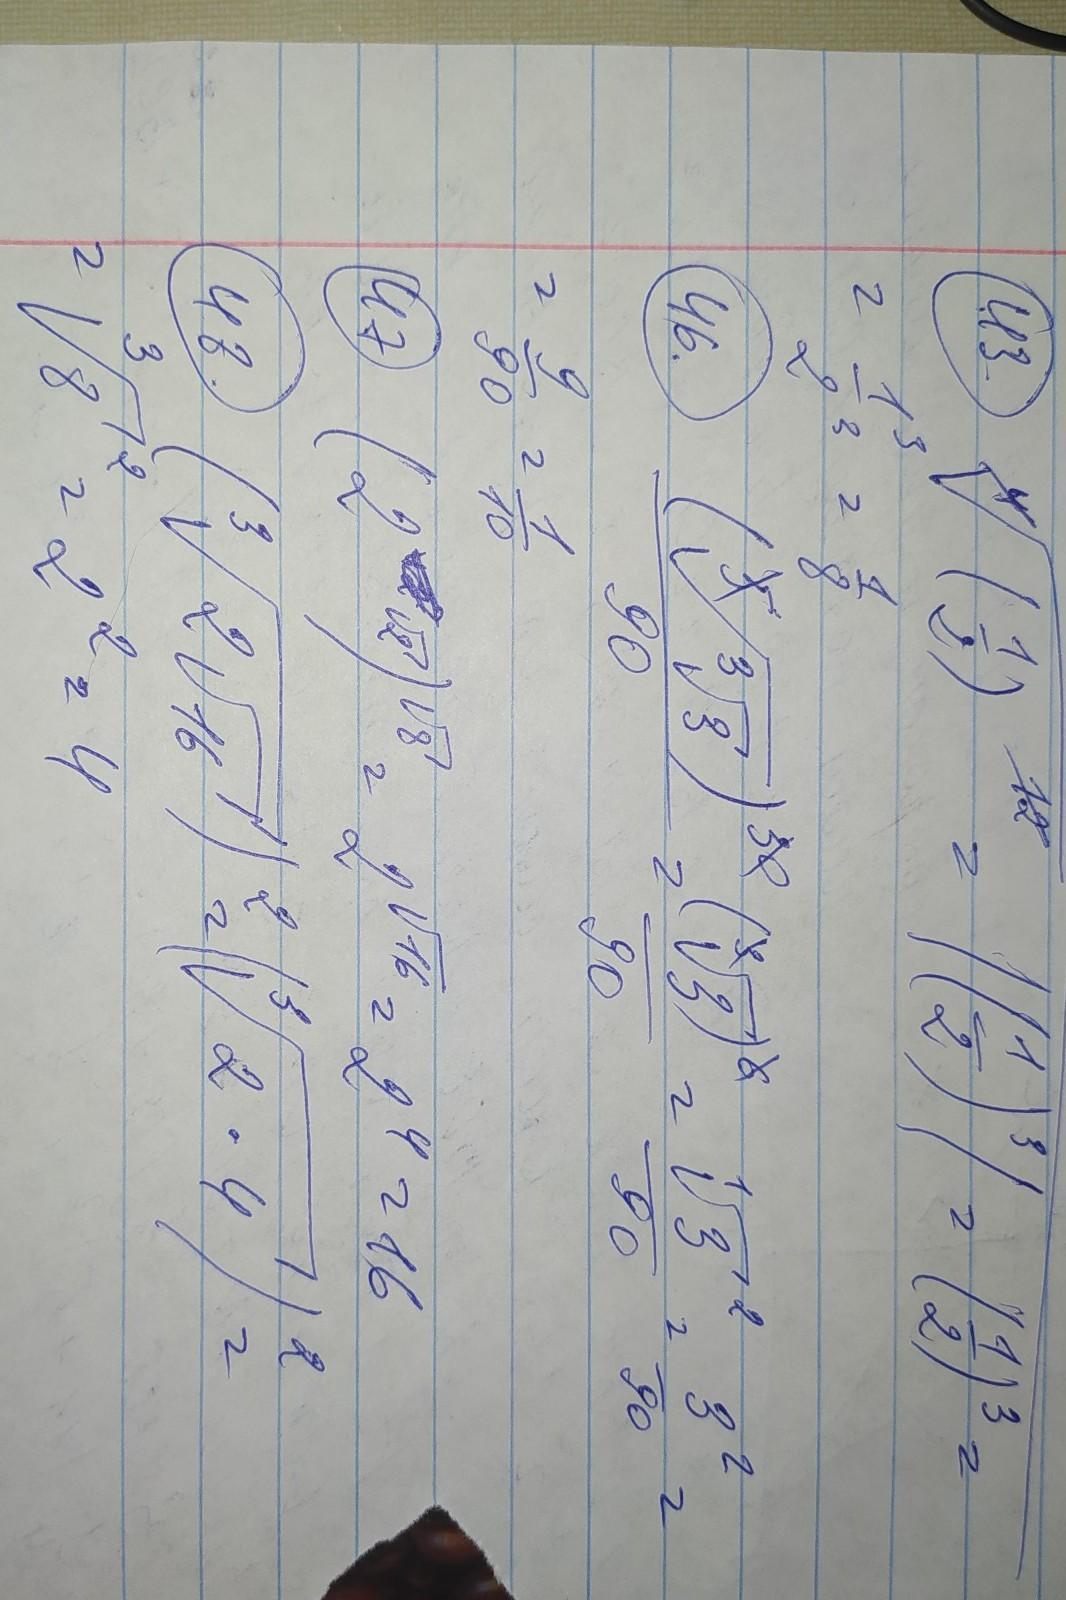 43. ⁴√(1/2)¹² = |(1/2)³| = (1/2)³ =
= 1³/2³ = 1/8
46. (⁵√³√3)³⁰/90 = (³√3)⁶/90 = ¹√3²/90 = 3²/90 =
= 9/90 = 1/10
47 (2^√2)^√8 = 2^√16 = 2⁴ = 16
48. (³√2√16)² = (³√2·4)² =
= ³√8² = 2² = 4